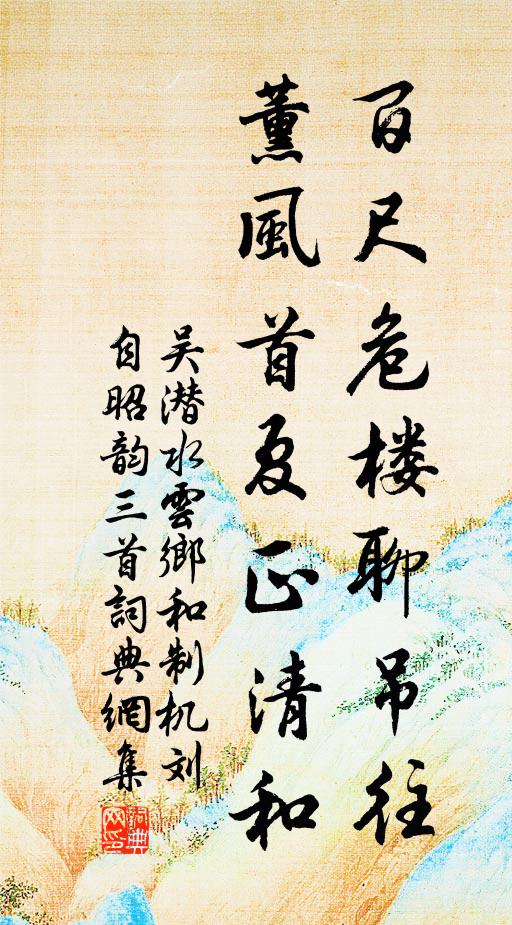 百尺危楼聊吊往
薰風首夏正清和
吴潜水雲鄉和制机刘
自昭韵三首詞典網集
詞典
网印